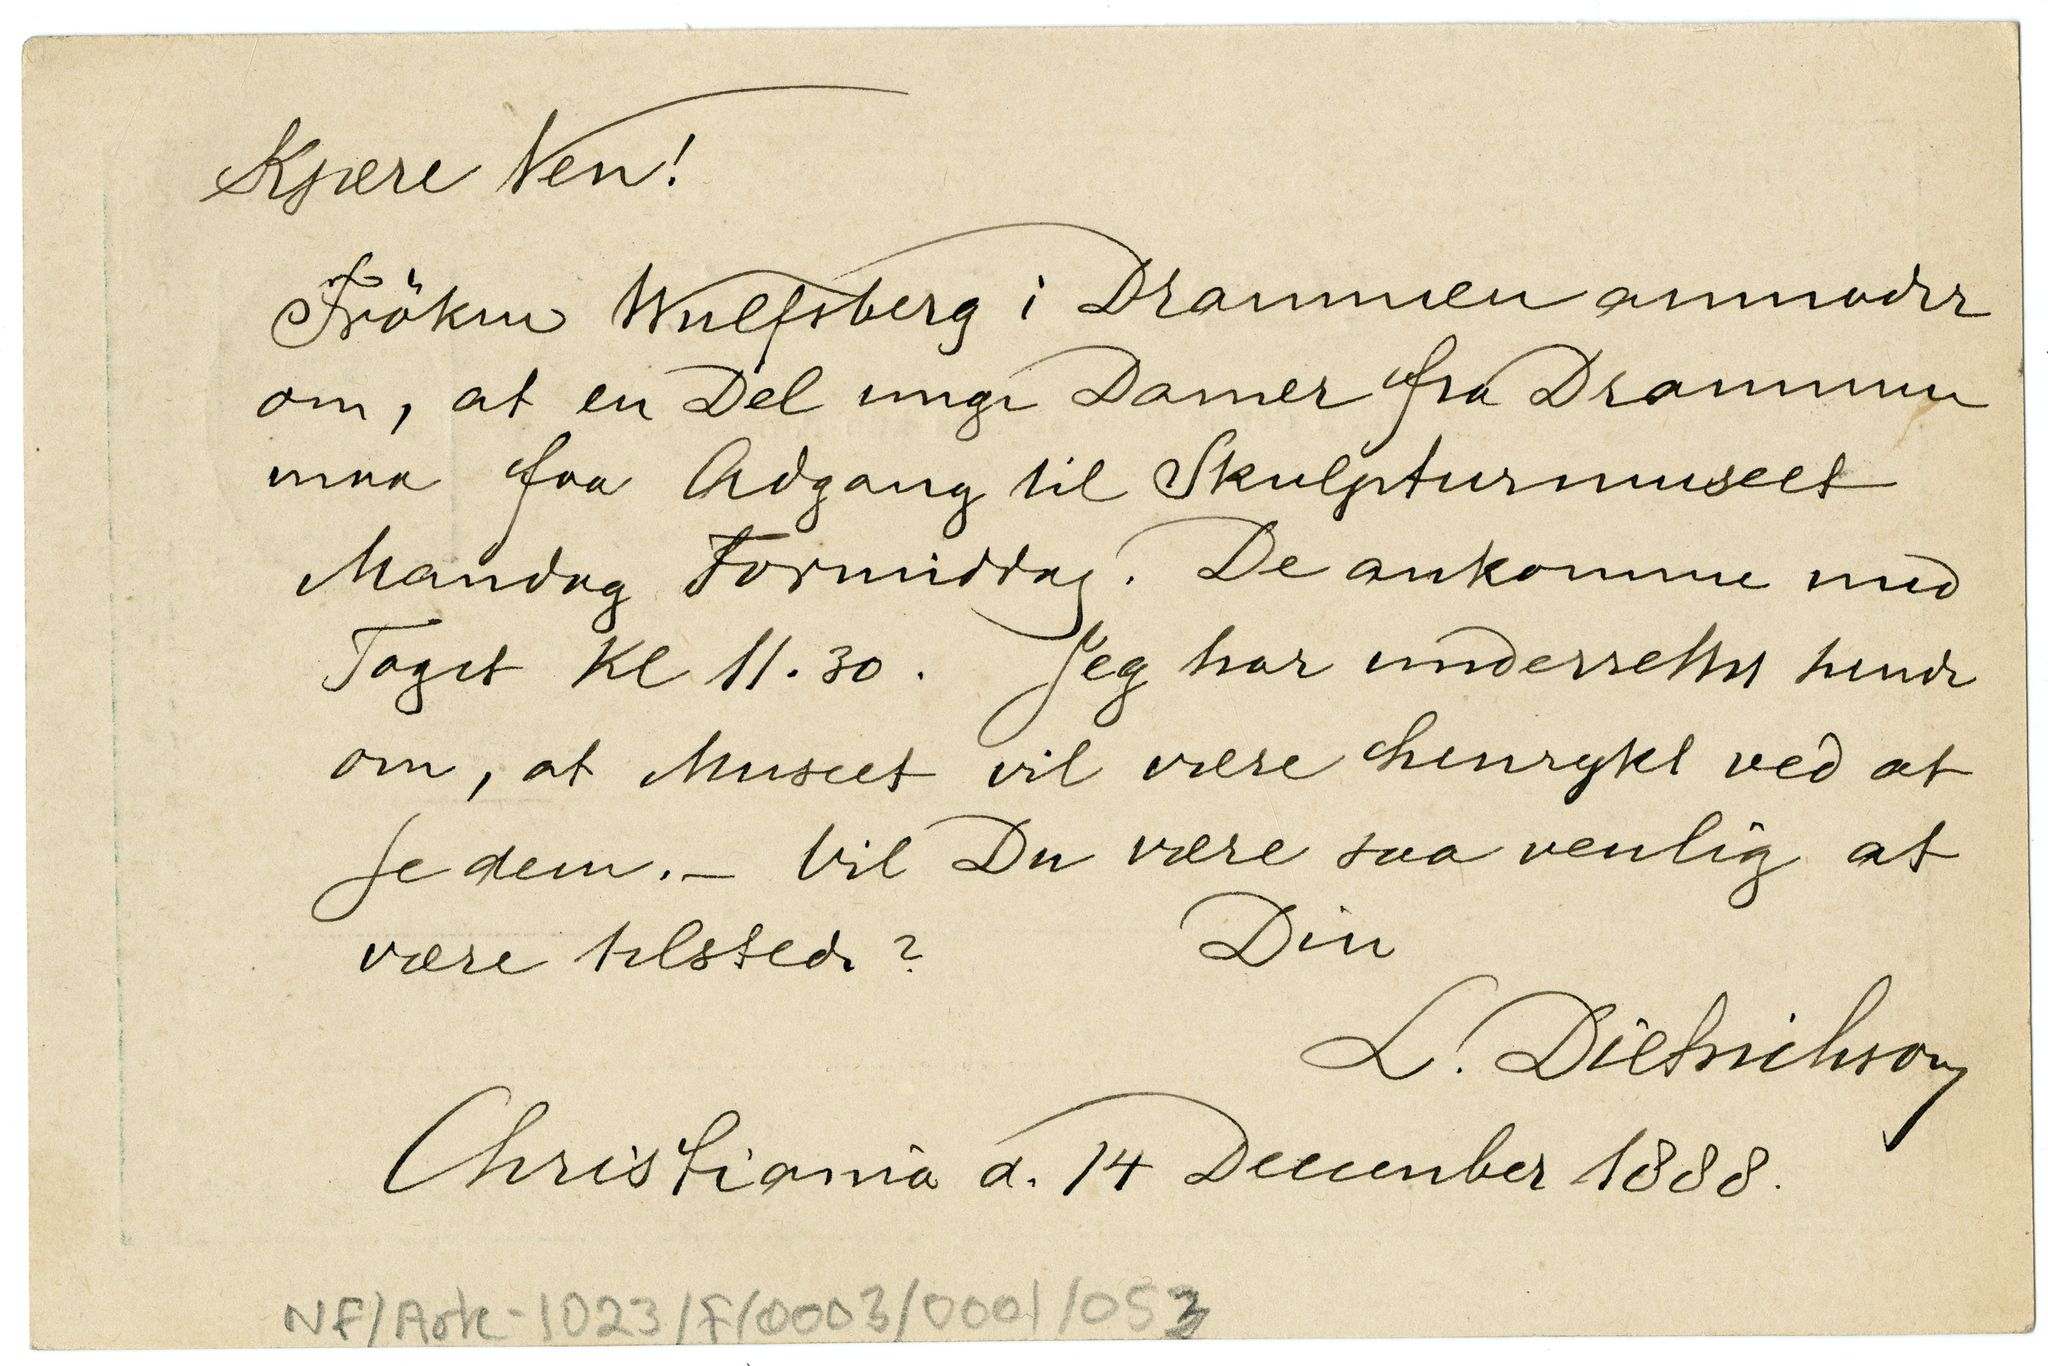 Kjære Ven!
Fröken Wulfsberg i Drammen anmoder
om, at en Del unge Damer fra Drammen
maa faa Adgang til Skulpturmuseet
Mandag Formiddag. De ankomme med
Toget Kl 11.30. Jeg har underrettet hende
om, at Museet vil være henrykt ved at
se dem. – Vil Du være saa venlig at
være tilstede?
Din
L. Dietrichson
Christiania d. 14 December 1888.
NF/Ark-1023/F/0003/0001/053